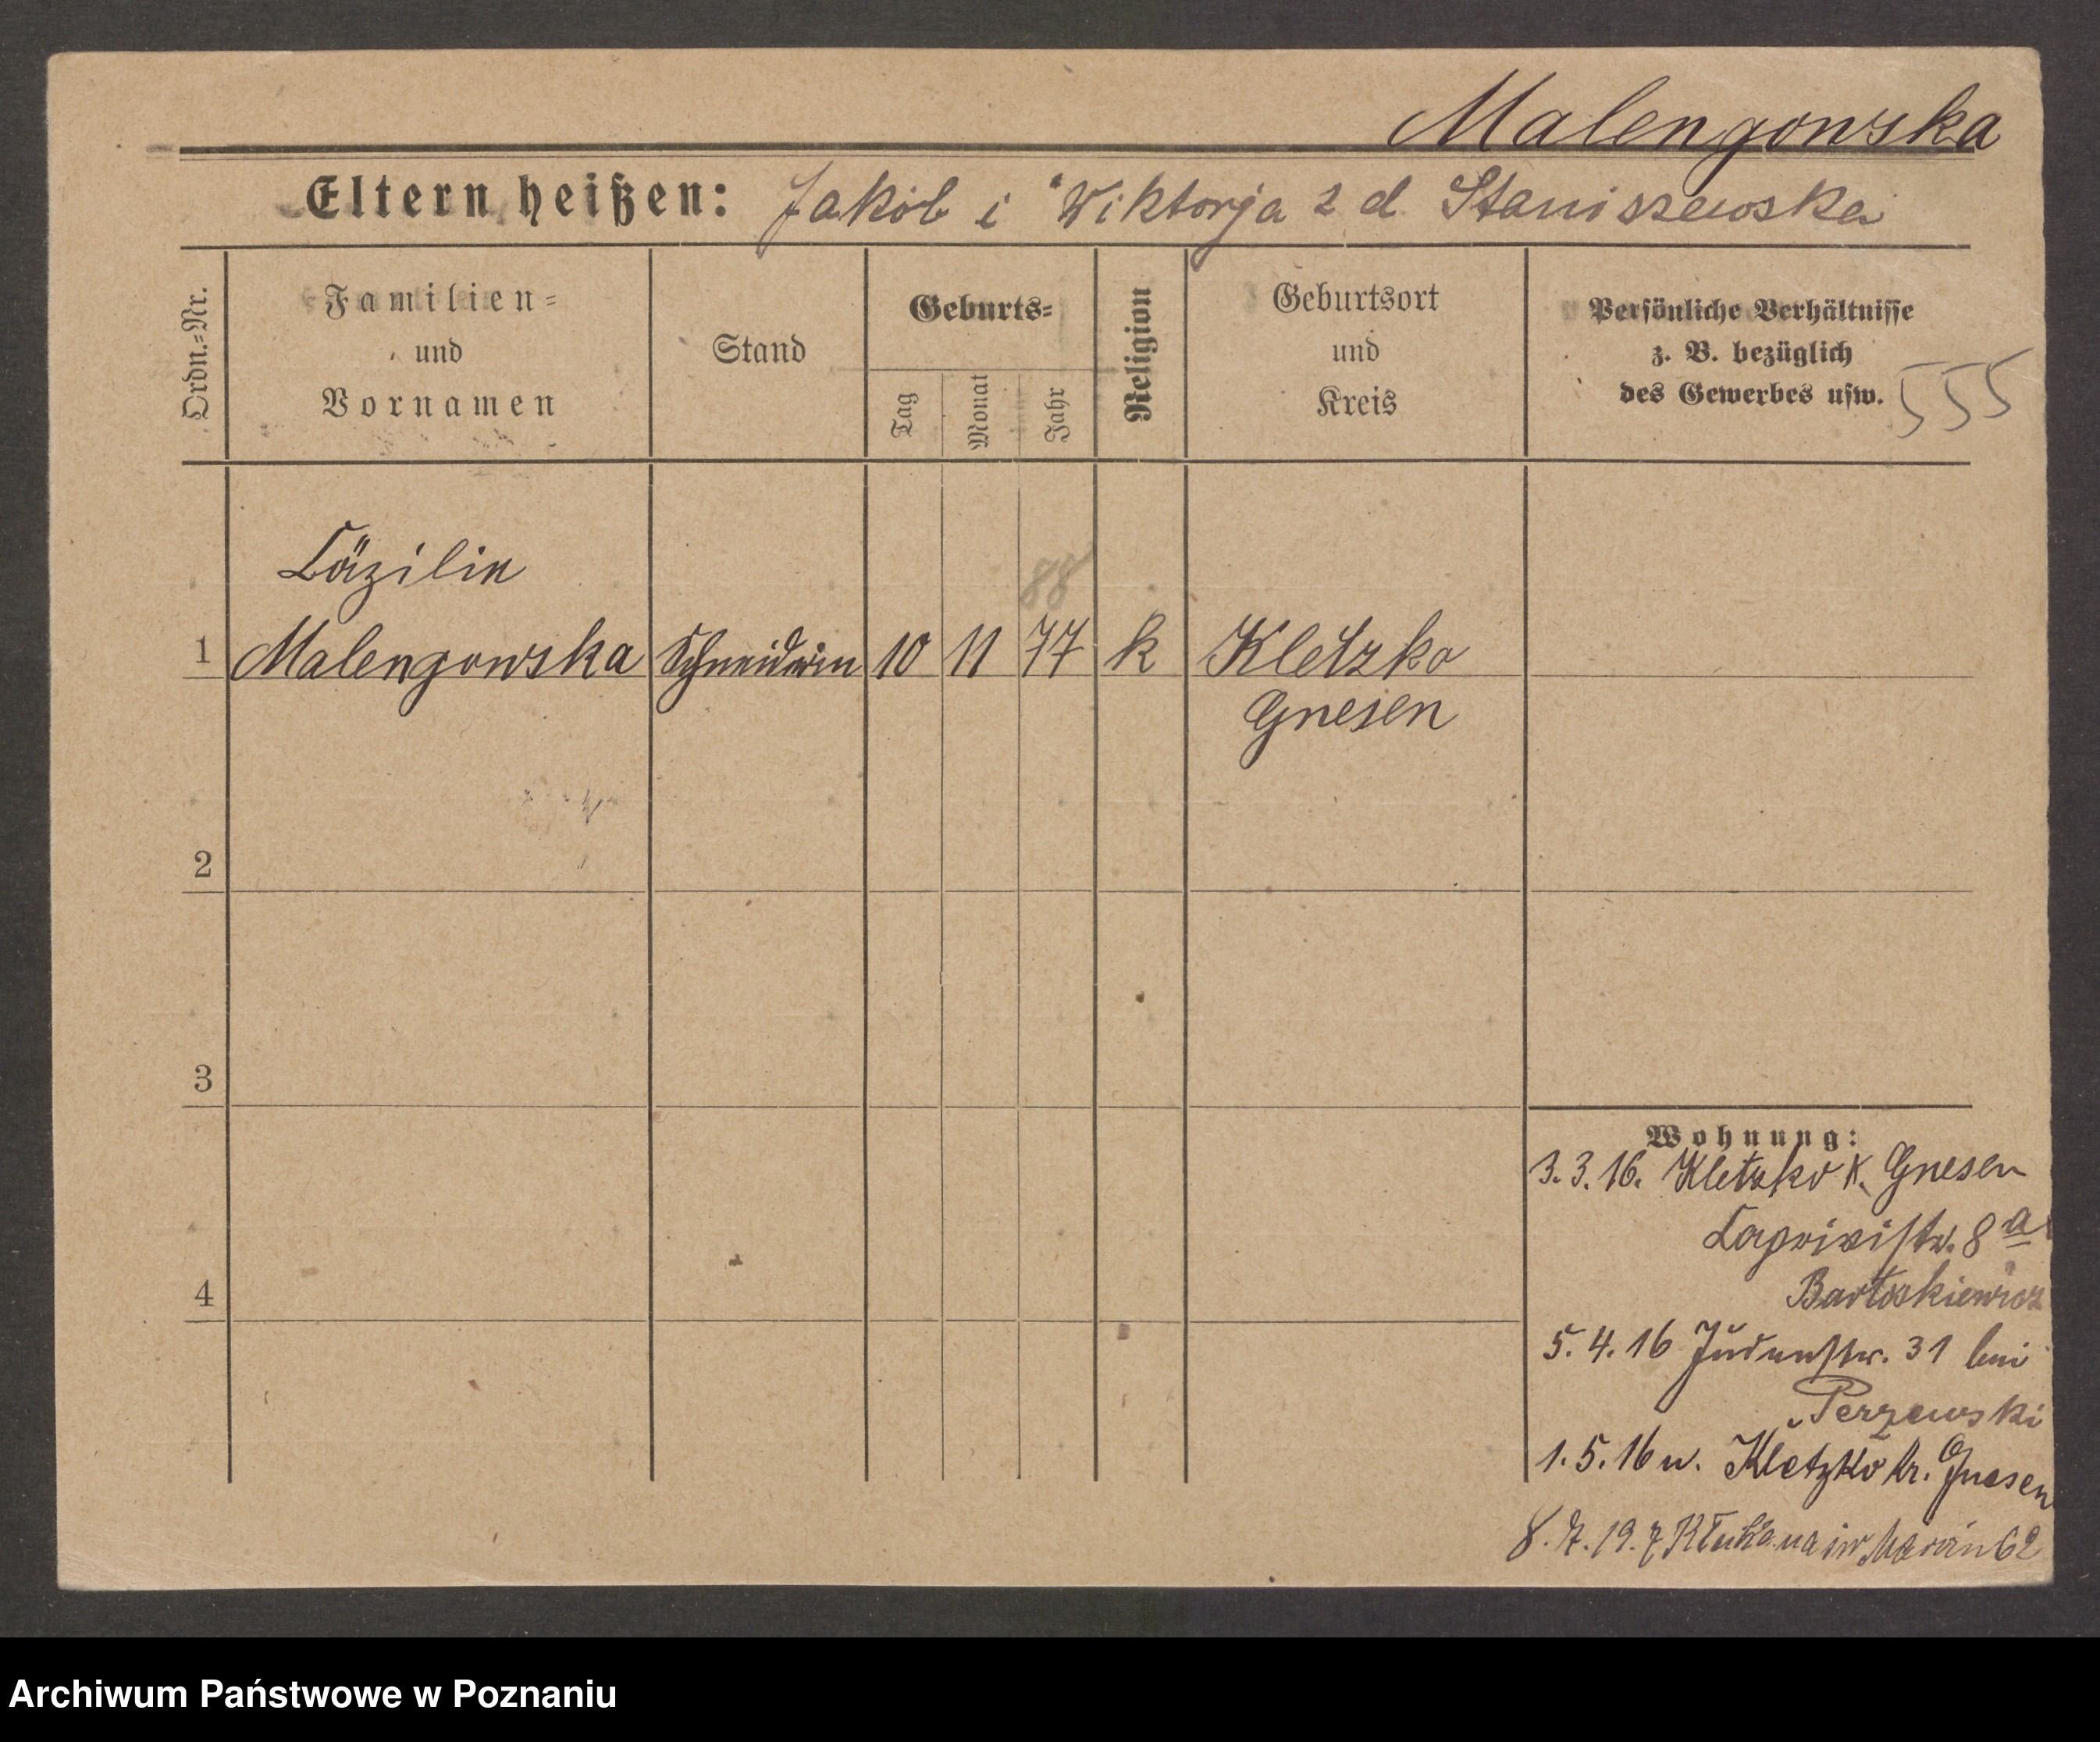 Malengowska
Eltern heißen: Jakób i Wiktorja z d. Staniszewska
Ordn.-Nr.
Familien-
und
Vornamen
Stand
Geburts-
Tag
Monat
Jahr
Religion
Geburtsort
und
Kreis
Persönliche Verhältnisse
z. B. bezüglich
des Gewerbes usw.
555
Cäzilie
88
1 Malengowska Schneiderin 10 11 77 k Kletzko
Gnesen
2
3
4
Wohnung:
3.3.16. Kletzko K. Gnesen
Caprivistr. 8 a
Bartoskiewicz
5.4.16 Judenstr. 31 bei
Perzewski
1.5.16 n. Kletzko Kr. Gnesen
8.7.19. z Kłecka na św Marcin 62
Archiwum Państwowe w Poznaniu